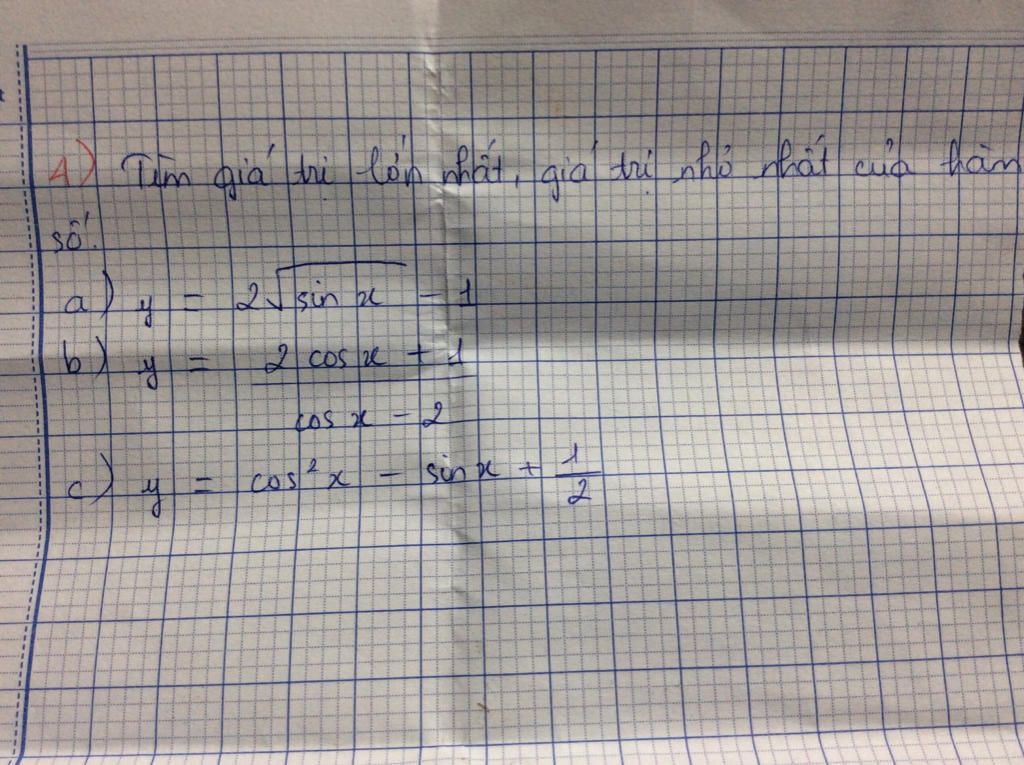 A) Tìm giá trị lớn nhất, giá trị nhỏ nhất của hàm
số.
a) y = 2√(sin x) - 1
b) y = (2 cos x + 1)/(cos x - 2)
c) y = cos² x - sin x + 1/2